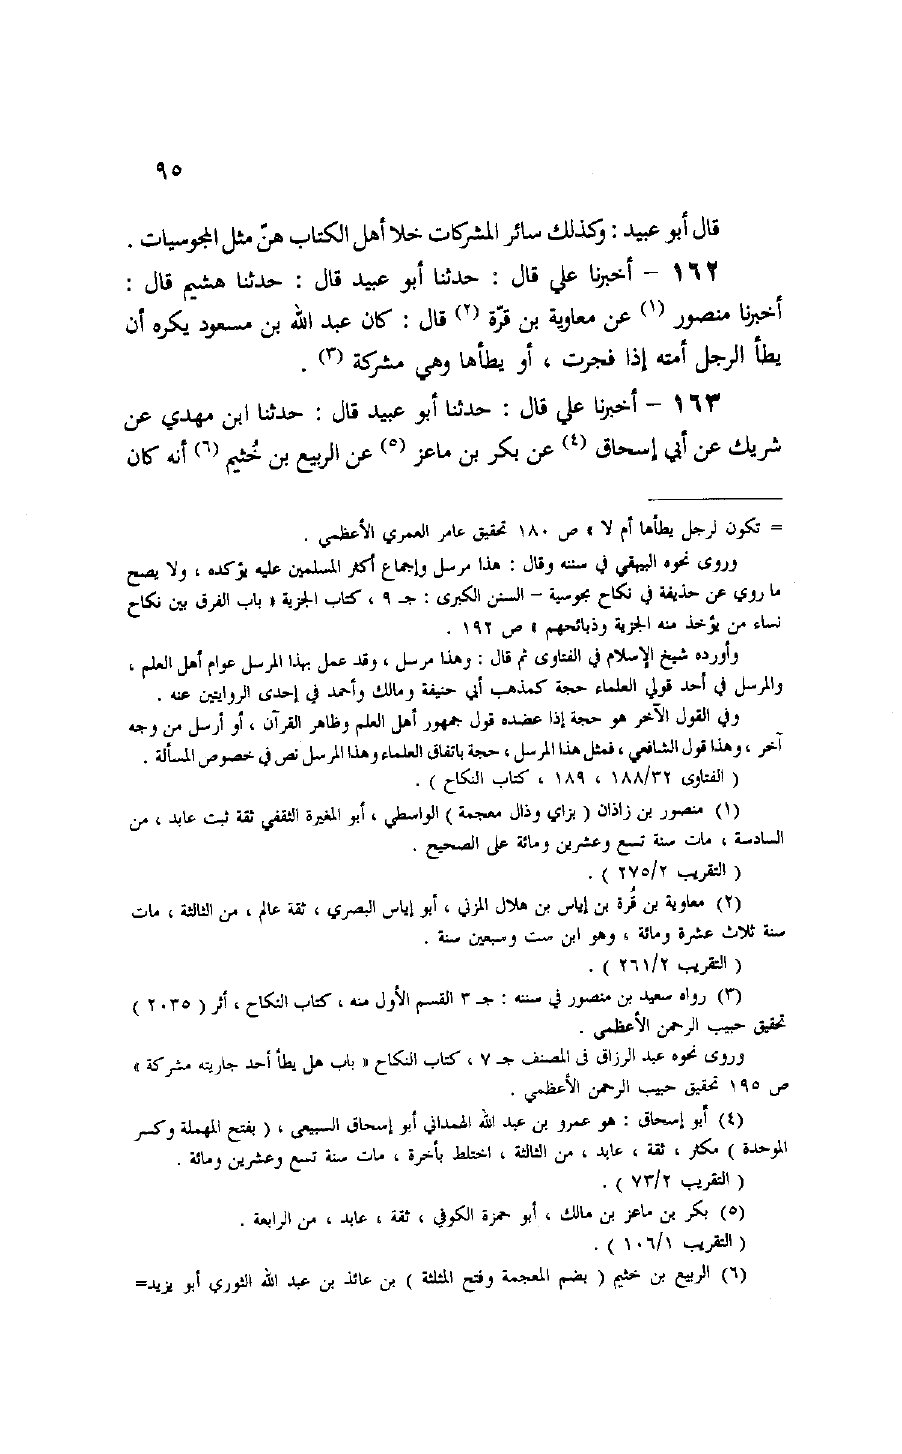 ٩٥
قال أبو عبيد : وكذلك سائر المشركات خلا أهل الكتاب هنّ مثل المجوسيات .
١٦٢ – أخبرنا علي قال : حدثنا أبو عبيد قال : حدثنا هشيم قال :
أخبرنا منصور (١) عن معاوية بن قرّة (٢) قال : كان عبد الله بن مسعود يكره أن
يطأ الرجل أمته إذا فجرت ، أو يطأها وهي مشركة (٣) .
١٦٣ – أخبرنا علي قال : حدثنا أبو عبيد قال : حدثنا ابن مهدي عن
شريك عن أبي إسحاق (٤) عن بكر بن ماعز (٥) عن الربيع بن خُثيم (٦) أنه كان
= تكون لرجل يطأها أم لا » ص ١٨٠ تحقيق عامر العمري الأعظمي .
وروى نحوه البيهقي في سننه وقال : هذا مرسل وإجماع أكثر المسلمين عليه يؤكده ، ولا يصح
ما روي عن حذيفة في نكاح مجوسية – السنن الكبرى : جـ ٩ ، كتاب الجزية « باب الفرق بين نكاح
نساء من يؤخذ منه الجزية وذبائحهم » ص ١٩٢ .
وأورده شيخ الإسلام في الفتاوى ثم قال : وهذا مرسل ، وقد عمل بهذا المرسل عوام أهل العلم ،
والمرسل في أحد قولي العلماء حجة كمذهب أبي حنيفة ومالك وأحمد في إحدى الروايتين عنه .
وفي القول الآخر هو حجة إذا عضده قول جمهور أهل العلم وظاهر القرآن ، أو أرسل من وجه
آخر ، وهذا قول الشافعي ، فمثل هذا المرسل ، حجة باتفاق العلماء وهذا المرسل نص في خصوص المسألة .
( الفتاوى ١٨٨/٣٢ ، ١٨٩ ، كتاب النكاح ) .
(١) منصور بن زاذان ( بزاي وذال معجمة ) الواسطي ، أبو المغيرة الثقفي ثقة ثبت عابد ، من
السادسة ، مات سنة تسع وعشرين ومائة على الصحيح .
( التقريب ٢٧٥/٢ ) .
(٢) معاوية بن قُرة بن إياس بن هلال المزني ، أبو إياس البصري ، ثقة عالم ، من الثالثة ، مات
سنة ثلاث عشرة ومائة ، وهو ابن ست وسبعين سنة .
( التقريب ٢٦١/٢ ) .
(٣) رواه سعيد بن منصور في سننه : جـ ٣ القسم الأول منه ، كتاب النكاح ، أثر ( ٢٠٣٥ )
تحقيق حبيب الرحمن الأعظمي .
وروى نحوه عبد الرزاق فى المصنف جـ ٧ ، كتاب النكاح « باب هل يطأ أحد جاريته مشركة »
ص ١٩٥ تحقيق حبيب الرحمن الأعظمي .
(٤) أبو إسحاق : هو عمرو بن عبد الله الهمداني أبو إسحاق السبيعى ، ( بفتح المهملة وكسر
الموحدة ) مكثر ، ثقة ، عابد ، من الثالثة ، اختلط بأخرة ، مات سنة تسع وعشرين ومائة .
( التقريب ٧٣/٢ ) .
(٥) بكر بن ماعز بن مالك ، أبو حمزة الكوفي ، ثقة ، عابد ، من الرابعة .
( التقريب ١٠٦/١ ) .
(٦) الربيع بن خثيم ( بضم المعجمة وفتح المثلثة ) بن عائذ بن عبد الله الثوري أبو يزيد=